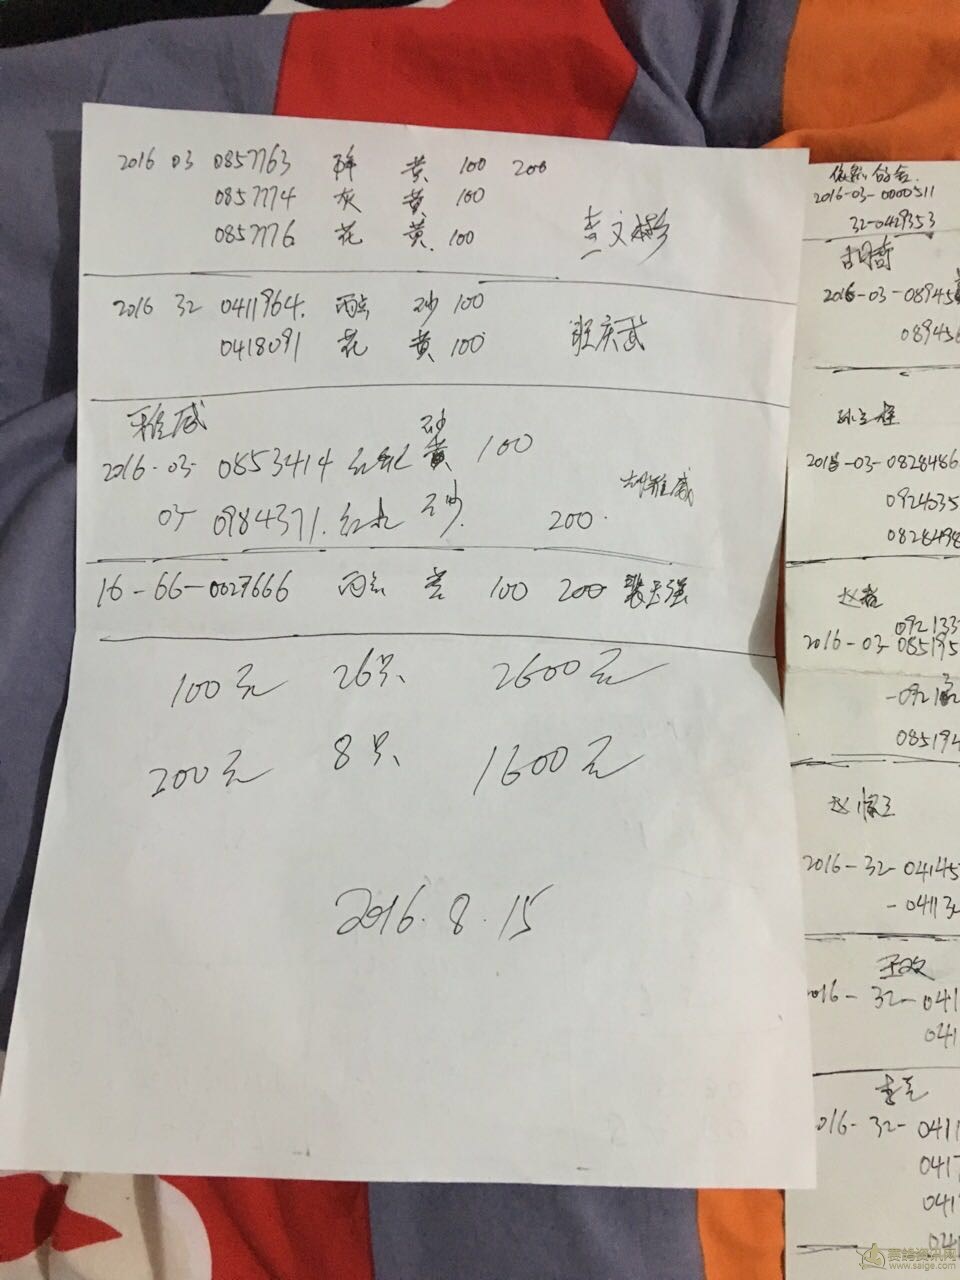 2016 03 0857763 雨 黄 100 200
0857774 灰 黄 100
0857776 花 黄 100
李文彬
2016 32 0411964. 雨点 砂 100
0418091 花 黄 100
班庆武
雅威
砂
2016-03-0853414 红轮 黄 100
03 0984371. 红轮 砂. 200.
胡雅威
16-66-0027666 雨点 100 200
100元 26只 2600元
200元 8只 1600元
2016.8.15
2016-03-0000511
32-0429353
2016-03-08945
089456
2016-03-0828486
0924035
0828498
092133
2016-03-085195
085194
2016-32-04145
-04113
2016-32-041
041
2016-32-0411
0417
041
041
赛鸽资讯网
www.saige.com